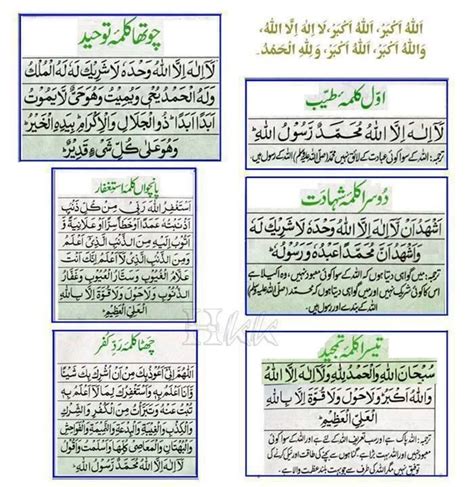 اَللهُ اَكْبَرُ، اَللهُ اَكْبَرُ، لَا اِلٰهَ اِلَّا اللهُ،
وَاللهُ اَكْبَرُ، اَللهُ اَكْبَرُ، وَلِلّٰهِ الْحَمْدُ۔
اوّل کلمہ طیّب
لَآ اِلٰهَ اِلَّا اللهُ مُحَمَّدٌ رَّسُوْلُ اللهِ
ترجمہ: اللہ کے سوا کوئی عبادت کے لائق نہیں محمد (صلی اللہ علیہ وسلم) اللہ کے رسول ہیں۔
دوسرا کلمہ شہادت
اَشْهَدُ اَنْ لَّآ اِلٰهَ اِلَّا اللهُ وَحْدَهٗ لَا شَرِيْكَ لَهٗ
وَاَشْهَدُ اَنَّ مُحَمَّدًا عَبْدُهٗ وَرَسُوْلُهٗ
ترجمہ: میں گواہی دیتا ہوں کہ اللہ کے سوا کوئی معبود نہیں وہ اکیلا ہے
اس کا کوئی شریک نہیں اور میں گواہی دیتا ہوں کہ محمد (صلی اللہ علیہ وسلم)
اللہ کے بندے اور رسول ہیں۔
تیسرا کلمہ تمجید
سُبْحَانَ اللهِ وَالْحَمْدُ لِلّٰهِ وَلَآ اِلٰهَ اِلَّا اللهُ
وَاللهُ اَكْبَرُ وَلَا حَوْلَ وَلَا قُوَّةَ اِلَّا بِاللهِ
الْعَلِيِّ الْعَظِيْمِ
ترجمہ: اللہ پاک ہے اور سب تعریف اللہ کے لئے ہے اور اللہ کے سوا کوئی
معبود نہیں اور اللہ سب سے بڑا ہے، گناہوں سے بچنے کی طاقت اور نیکی کرنے کی
توفیق نہیں مگر اللہ کی طرف سے جو بہت بلند عظمت والا ہے۔
چوتھا کلمہ توحید
لَآ اِلٰهَ اِلَّا اللهُ وَحْدَهٗ لَا شَرِيْكَ لَهٗ لَهُ الْمُلْكُ
وَلَهُ الْحَمْدُ يُحْيٖ وَيُمِيْتُ وَهُوَ حَيٌّ لَّا يَمُوْتُ
اَبَدًا اَبَدًا ذُو الْجَلَالِ وَالْاِكْرَامِ بِيَدِهِ الْخَيْرُ
وَهُوَ عَلٰى كُلِّ شَيْءٍ قَدِيْرٌ
پانچواں کلمہ استغفار
اَسْتَغْفِرُ اللهَ رَبِّيْ مِنْ كُلِّ ذَنْۢبٍ
اَذْنَبْتُهٗ عَمَدًا اَوْ خَطَأً سِرًّا اَوْ عَلَانِيَةً وَّ
اَتُوْبُ اِلَيْهِ مِنَ الذَّنْۢبِ الَّذِيْٓ اَعْلَمُ
وَمِنَ الذَّنْۢبِ الَّذِيْ لَآ اَعْلَمُ اِنَّكَ اَنْتَ
عَلَّامُ الْغُيُوْبِ وَسَتَّارُ الْعُيُوْبِ وَغَفَّارُ
الذُّنُوْبِ وَلَا حَوْلَ وَلَا قُوَّةَ اِلَّا بِاللهِ
الْعَلِيِّ الْعَظِيْمِ
Hkk
چھٹا کلمہ ردِّ کفر
اَللّٰهُمَّ اِنِّيْٓ اَعُوْذُ بِكَ مِنْ اَنْ اُشْرِكَ بِكَ شَيْئًا
وَّاَنَا اَعْلَمُ بِهٖ وَاَسْتَغْفِرُكَ لِمَا لَآ اَعْلَمُ بِهٖ
تُبْتُ عَنْهُ وَتَبَرَّأْتُ مِنَ الْكُفْرِ وَالشِّرْكِ
وَالْكِذْبِ وَالْغِيْبَةِ وَالْبِدْعَةِ وَالنَّمِيْمَةِ وَالْفَوَاحِشِ
وَالْبُهْتَانِ وَالْمَعَاصِيْ كُلِّهَا وَاَسْلَمْتُ وَاَقُوْلُ
لَآ اِلٰهَ اِلَّا اللهُ مُحَمَّدٌ رَّسُوْلُ اللهِ